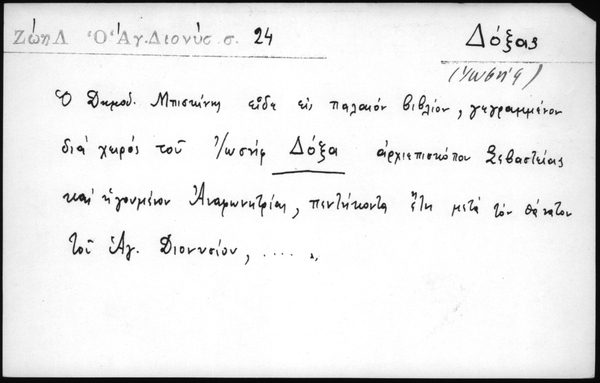 Ζώη Λ Ὁ Ἅγ. Διονύσ. σ. 24
Δόξας
(Ἰωσήφ)
Ὁ Δημοδ. Μπισκίνης εἶδε εἰς παλαιόν βιβλίον, γεγραμμένον
διά χειρός τοῦ Ἰωσήφ Δόξα ἀρχιεπισκόπου Σεβαστείας
καί ἡγουμένου Ἀναφωνητρίας, πεντήκοντα ἔτη μετά τόν θάνατον
τοῦ Ἁγ. Διονυσίου, .....